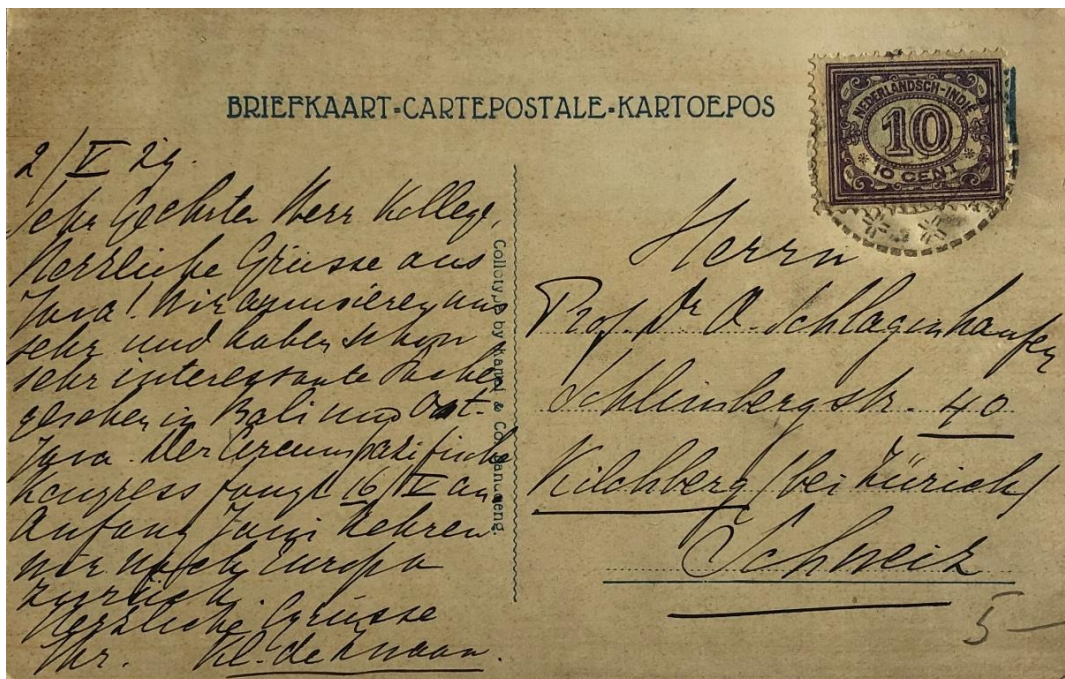 BRIEFKAART-CARTEPOSTALE-KARTOEPOS
NEDERLANDSCH-INDIË
10
10 CENT
2/V 29.
Sehr Geehrter Herr Kollege,
Herzliche Grüsse aus
Java! Wir amusieren uns
sehr und haben schon
sehr interessante Sachen
gesehen in Bali und Ost-
Java. Der Circumpazifische
Kongress fangt 16/V an
Anfang Juni kehren
wir nach Europa
zurück.
Herzliche Grüsse
Ihr.
Collotype by & Co. Bandoeng.
Herrn
Prof. Dr O. Schlaginhaufen
40
Kilchberg (bei Zürich)
Schweiz
5-